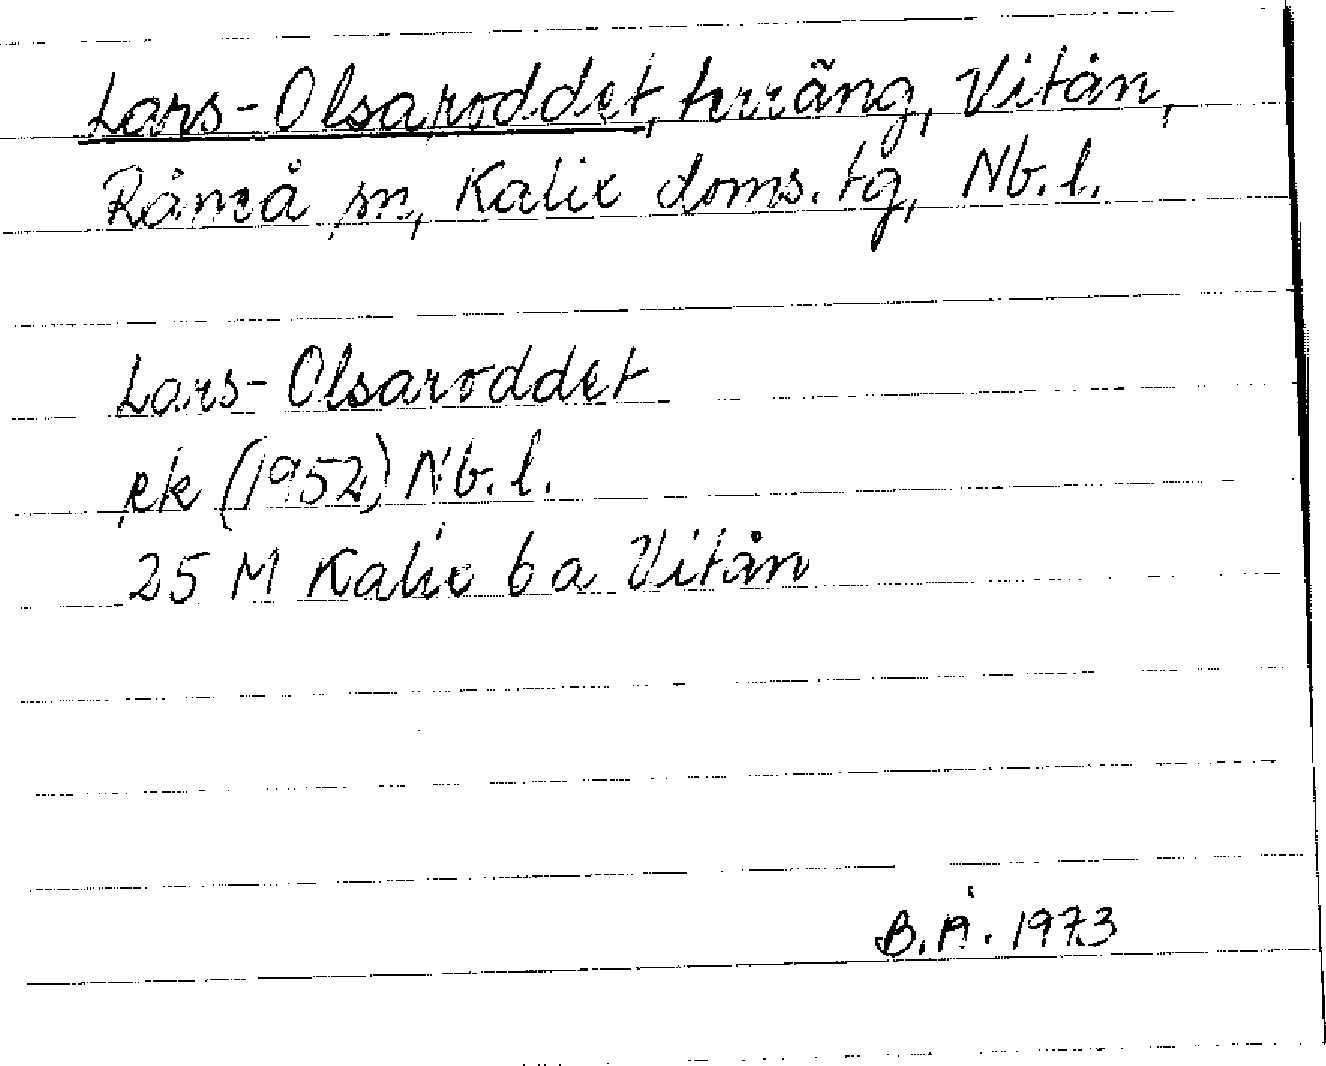 Lars-Olsaroddet, terräng, Vitån,
Råneå sn, Kalix doms. tg, Nb. l.
Lars-Olsaroddet
ek (1952) Nb. l.
25 M Kalix 6 a Vitån
B.Å. 1973